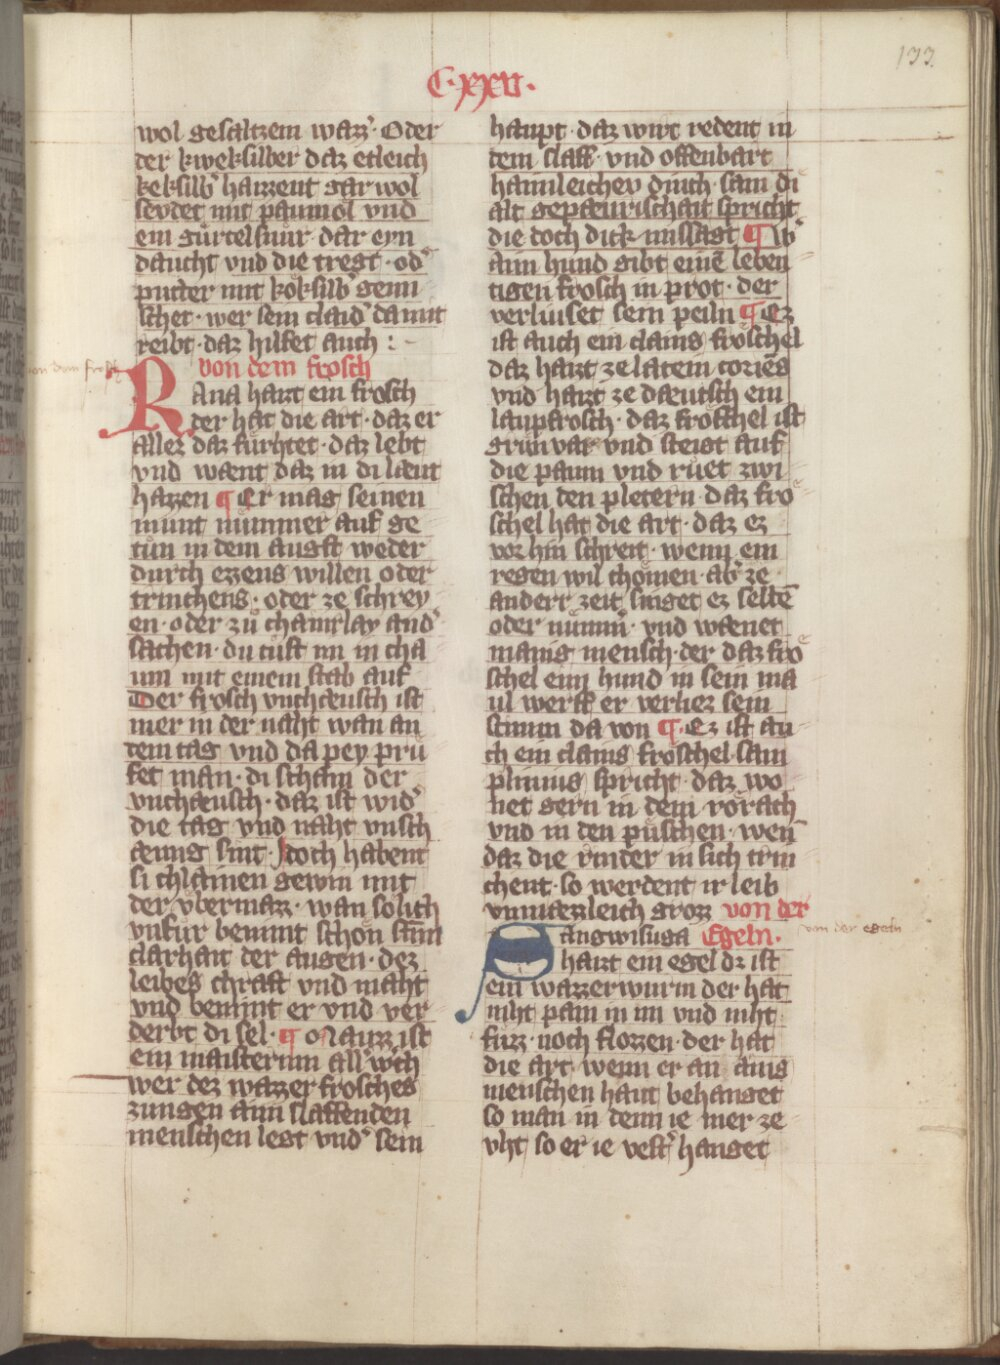 133
C·xxv·
wol gesaltzem wazz᾿· Oder
der kweksilber daz etleich
keksilb᾿ haizzent gar wol
seydet mit paumöl vnd
ein gürtelsnur dar eyn
daucht vnd die tregt · od᾿
putter mit koksilb᾿ gemi
schet · wer sein claid᾿ da mit
reibt · daz hilfet auch :
von dem frosch
von dem frosch
Rana haizt ein frosch
der hat die art · daz er
allez daz fürhtet · daz lebt
vnd wænt daz in di læut
hazzen ¶ Er mag seinen
munt nümmer auf ge
tůn in dem augst weder
durch ezzens willen oder
trinchens · oder ze schrey
en · oder zů chainrlay and᾿
sachen · du tust im in cha
um mit einem stab auf
Der frosch vnchæusch ist
mer in der naht wan an
dem tag vnd da pey prü
fet man · di scham der
vnchæusch · daz ist wid᾿
die tag vnd naht vnsch
æmig sint · Jdoch habent
si chlainen gewin mit
der vbermazz · wan solich
vnfůr benimt schön stim
clarhait der augen · dez
leibes chraft vnd maht
vnd benimt er vnd ver
derbt di sel · ¶ Nauzz ist
ein maisterinn all᾿ w᾿ch
wer dez wazzer frosches
zungen aim slaffenden
menschen legt vnd᾿ sein
haupt · daz wirt redent in
dem slaff · vnd offenbart
haimleichev dinch · sam di
alt gepæurischait spricht
die doch dick missagt ¶ W᾿
aim hund gibt einē leben
tigen frosch in prot · der
verliuset sein peiln ¶ Ez
ist auch ein clains fröschel
daz haizt ze latein corie᾿s
vnd haizt ze dæutsch ein
laupfrosch · daz fröschel ist
grünvar · vnd steigt auf
die paum vnd rüet zwi
schen den pletern · daz frö
schel hat die art · daz ez
vor hin schreit · wenn ein
regen wil chömen · ab᾿ ze
anderr zeit singet ez seltē
oder nümm᾿ · vnd wænet
manig mensch · der daz frö
schel eim hund in sein ma
ul werff er verliez sein
stimm da von ¶ · Ez ist au
ch ein clains fröschel sam
plinius spricht · daz wo
net gern in dem rörach
vnd in den püschen · wen̄
daz die rinder in sich trin
chent · so werdent ir leib
vnmæzzleich grozz von der
Sangwisuga Egeln·
von der egeln
haizt ein egel dz ist
ein wazzerwurm der hat
niht pain in im vnd niht
füzz · noch flozzen · der hat
die art · wenn er an ains
menschen haut behanget
so man in denn ie mer ze
vht so er ie vest᾿ hanget